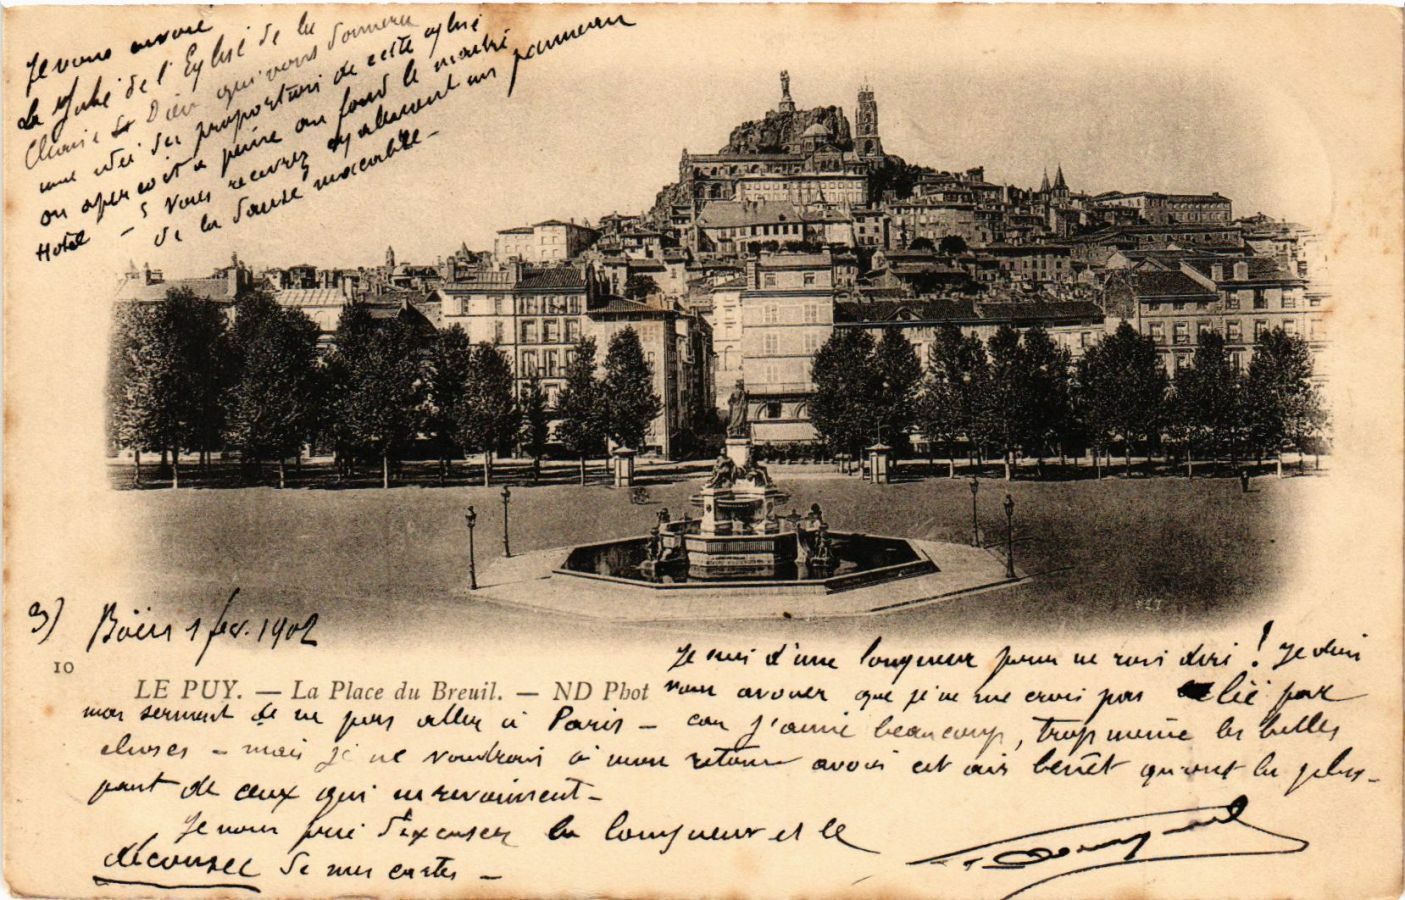 Je vous envoie
Le Jubé de l'Eglise de la
Chaise Dieu qui vous donnera
une idée des proportions de cette église
on aperçoit à peine au fond le maître
Hotel - Vous recevrez également un panneau
de la danse macabre -
3) 1 fev. 1902
10
LE PUY. — La Place du Breuil. — ND Phot
Je suis d'une longueur pour ne rien dire! Je dois
vous avouer que je ne me crois pas lié par
mon serment de ne pas aller à Paris - car j'aime beaucoup, trop même les belles
choses - mais je ne voudrais à mon retour avoir cet air bênet qu'ont la plu-
part de ceux qui en reviennent -
Je vous prie d'excuser la longueur et le
décousu de mes cartes -